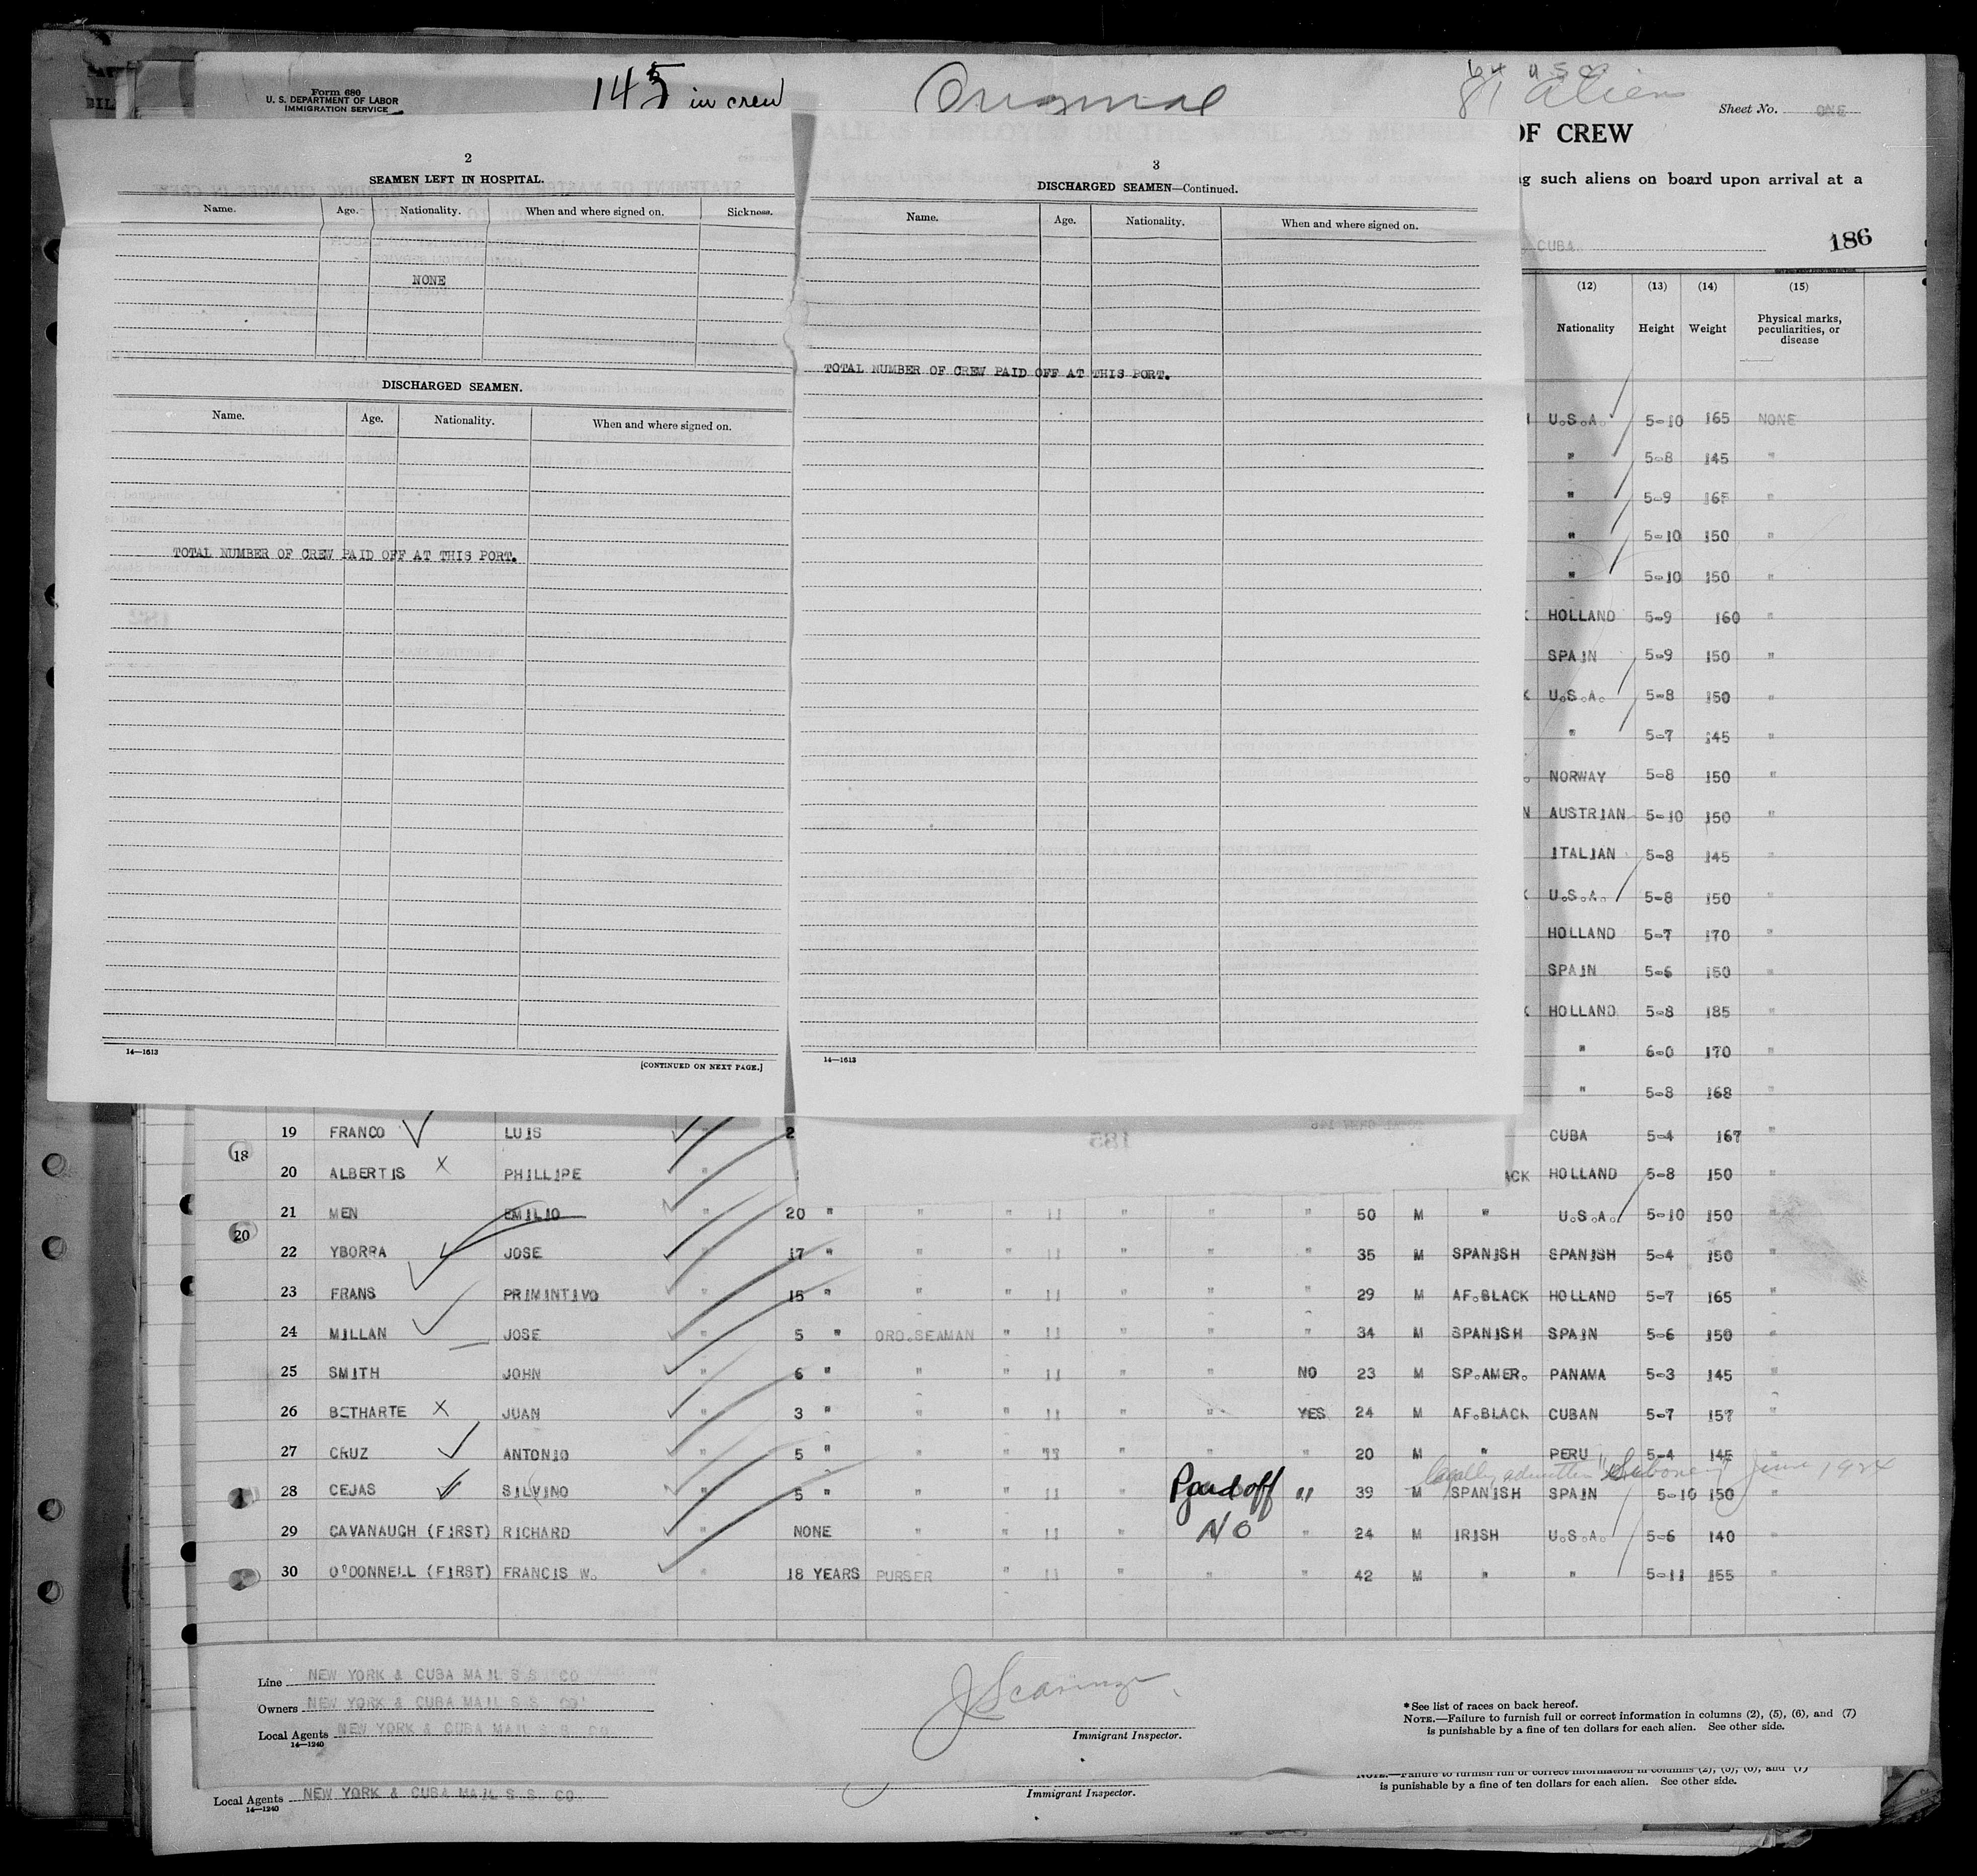 Form 680
U. S. DEPARTMENT OF LABOR
IMMIGRATION SERVICE
145 in crew
Original
64 U S C
81 Aliens
Sheet No. ONE
OF CREW
g such aliens on board upon arrival at a
CUBA
186
2
SEAMEN LEFT IN HOSPITAL.
Name. Age. Nationality. When and where signed on. Sickness.
NONE
DISCHARGED SEAMEN.
Name. Age. Nationality. When and where signed on.
TOTAL NUMBER OF CREW PAID OFF AT THIS PORT.
14—1613
[CONTINUED ON NEXT PAGE.]
3
DISCHARGED SEAMEN—Continued.
Name. Age. Nationality. When and where signed on.
TOTAL NUMBER OF CREW PAID OFF AT THIS PORT.
14—1613
(12) (13) (14) (15)
Nationality Height Weight Physical marks, peculiarities, or disease
U.S.A. 5-10 165 NONE
" 5-8 145 "
" 5-9 165 "
" 5-10 150 "
" 5-10 150 "
HOLLAND 5-9 160 "
SPAIN 5-9 150 "
U.S.A. 5-8 150 "
" 5-7 145 "
NORWAY 5-8 150 "
AUSTRIAN 5-10 150 "
ITALIAN 5-8 145 "
U.S.A. 5-8 150 "
HOLLAND 5-7 170 "
SPAIN 5-6 150 "
HOLLAND 5-8 185 "
" 6-0 170 "
" 5-8 168 "
19 FRANCO LUIS " 2 CUBA 5-4 167 "
18
20 ALBERTIS X PHILLIPE " ACK HOLLAND 5-8 150 "
21 MEN EMILIO " 20 " " " 11 " " " 50 M " U.S.A. 5-10 150 "
20
22 YBORRA JOSE " 17 " " " 11 " " " 35 M SPANISH SPANISH 5-4 150 "
23 FRANS PRIMINTIVO " 15 " " " 11 " " " 29 M AF.BLACK HOLLAND 5-7 165 "
24 MILLAN JOSE " 5 " ORD.SEAMAN " 11 " " " 34 M SPANISH SPAIN 5-6 150 "
25 SMITH JOHN " 6 " " " 11 " " NO 23 M SP.AMER. PANAMA 5-3 145 "
26 BETHARTE X JUAN " 3 " " " 11 " " YES 24 M AF.BLACK CUBAN 5-7 157 "
27 CRUZ ANTONIO " 5 " " " 11 " " " 20 M " PERU 5-4 145 "
legally admitted "Siboney" June 1924
28 CEJAS SILVINO " 5 " " " 11 " Paid off " 39 M SPANISH SPAIN 5-10 150 "
29 CAVANAUGH (FIRST) RICHARD " NONE " " 11 " NO " 24 M IRISH U.S.A. 5-6 140 "
30 O'DONNELL (FIRST) FRANCIS W. " 18 YEARS PURSER " 11 " " " 42 M " " 5-11 155 "
Line NEW YORK & CUBA MAIL S.S. CO
Owners NEW YORK & CUBA MAIL S.S. CO.
Local Agents NEW YORK & CUBA MAIL S.S. CO.
14—1240
Immigrant Inspector.
*See list of races on back hereof.
NOTE.—Failure to furnish full or correct information in columns (2), (5), (6), and (7)
is punishable by a fine of ten dollars for each alien. See other side.
NOTE.—Failure to furnish full or correct information in columns (2), (5), (6), and (7)
is punishable by a fine of ten dollars for each alien. See other side.
Local Agents NEW YORK & CUBA MAIL S.S. CO.
14—1240
Immigrant Inspector.